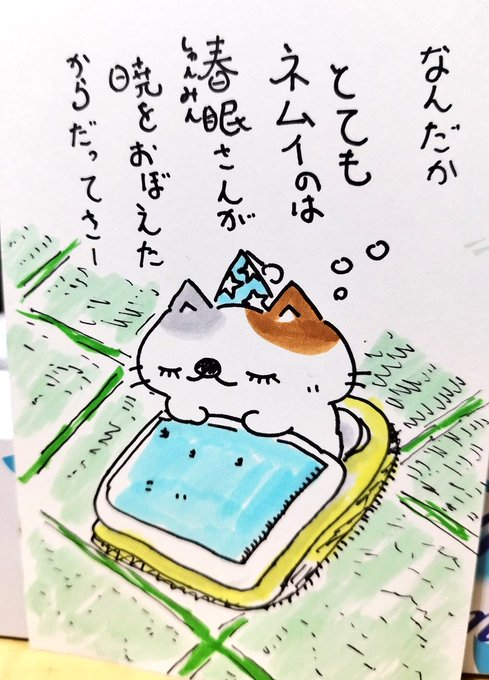 なんだか
とても
ネムイのは
春眠さんが
しゅんみん
暁をおぼえた
からだってさー